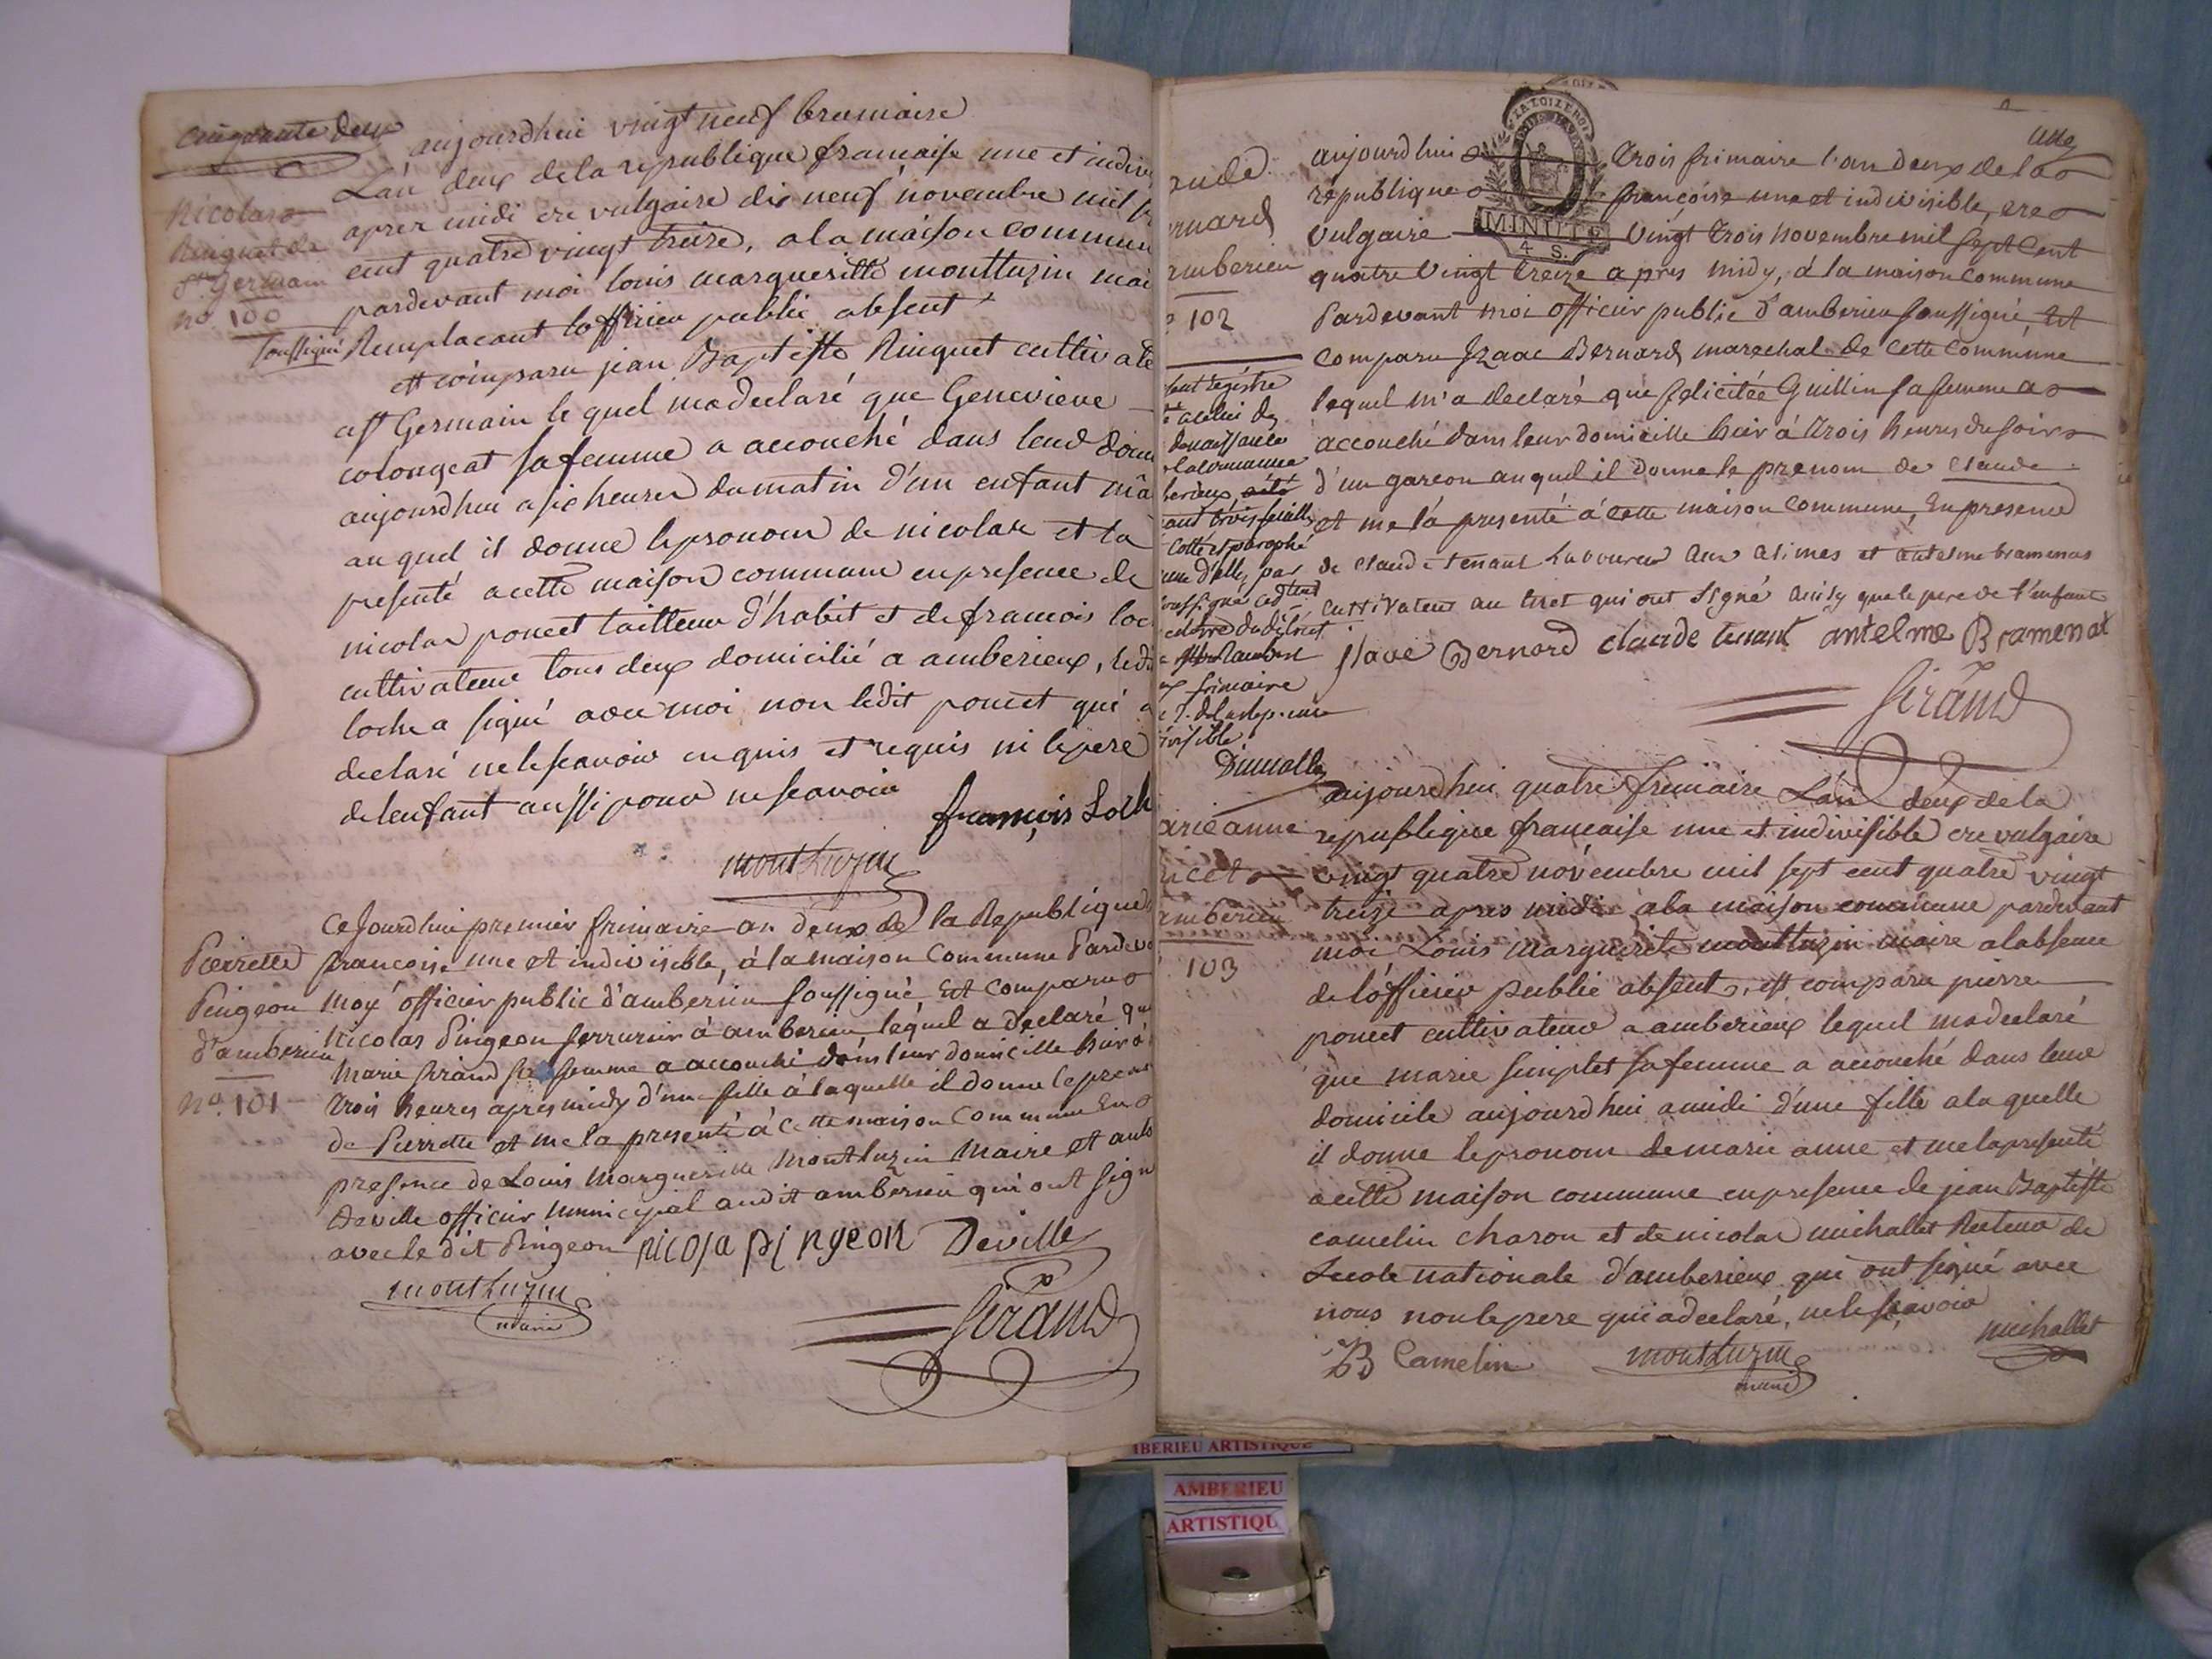 cinquante deux
aujourdhui vingt neuf brumaire
L'an deux de la republique francaise une et indiv
apres midi ere vulgaire dix neuf novembre mil s
cent quatre vingt treize, a la maison commun
pardevant moi louis margueritte montluzin mai
Remplacant lofficier public absent
soussigné
est comparu jean Baptiste Ruiguet cultivate
a st Germain le quel ma declaré que Genevieve
colongeat sa femme a accouché dans leur dom
aujourdhui a six heures du matin d'un enfant mâ
au quel il donne le pronom de nicolas et la
presenté a cette maison commune en presence de
nicolas poncet tailleur d'habit et de francois loc
cultivateur tous deux domicilié a amberieux, ledi
loche a signé avec moi non ledit poncet qui a
declaré ne le scavoir enquis et requis ni le pere
de lenfant aussi pour ne scavoir
françois Loch
montluzin
Nicolas
Ruiguet de
st Germain
no. 100
Ce Jourdhui premier frimaire an deux de la Republique
francoise une et indivisible, à la maison Commune Pardev
moy officier public d'amberieu soussigné, Est Comparu
Nicolas Pingeon serrurier à amberieu lequel a declaré qu
Marie Girand sa femme a accouché dans leur domicille hier à
trois heures apres midy d'une fille à laquelle il donne le pren
de Pierrette et me la presenté à cette maison Commune En
presence de Louis Marguerille Montluzin Maire et ant
Deville officier Municipal audit amberieu qui ont sign
avec le dit Pingeon nicola pingeon Deville
montluzin
maire
Girand
Pierrette
Pingeon
d'amberieu
no. 101
une
aujourdhui trois frimaire l'an deux de la
république françoise une et indivisible, ere
MINUTE
4 S.
Vulgaire vingt trois novembre mil sept cent
quatre vingt treize apres midy, à la maison commune
Pardevant moi officier public d'amberieu soussigné, Est
comparu Izaac Bernard marechal de cette commune
lequel m'a declaré que felicitée Guillin sa femme a
accouché dans leur domicille hier à trois heures du soir
d'un garcon auquel il donne le prenom de Claude
et me l'a presenté à cette maison commune, En presence
de claude tenant Laboureur aux alimes et antelme bramenas
cultivateur au tiret qui ont signé ainsy que le pere de l'enfant
Isaac Bernard claude tenant antelme Bramenat
Girand
aude
rnard
amberieu
102
sent registre
celui de
de naissance
la commune
berieux, a été
ant trois feuille
cotté et parophé
une d'elle par
soussigné
du district
Rambert
frimaire
de la rep. une
ivisible
aujourdhui quatre frimaire L'an deux de la
republique francaise une et indivisible ere vulgaire
vingt quatre novembre mil sept cent quatre vingt
treize apres midi a la maison commune pardevant
moi Louis Marguerite montluzin maire a labsence
de lofficier public absent, est comparu pierre
poncet cultivateur a amberieux lequel ma declaré
que marie simplet sa femme a accouché dans leur
domicile aujourdhui a midi d'une fille a la quelle
il donne le pronom de marie anne et me la presenté
a cette maison commune en presence de jean Baptiste
camelin charon et de nicolas michallet Recteur de
Lecole nationale d'amberieux qui ont signé avec
nous non le pere qui a declaré, ne le scavoir
michallet
JB Camelin montluzin
maire
arie anne
ncet
amberieu
103
IBERIEU ARTISTIQUE
AMBERIEU
ARTISTIQU